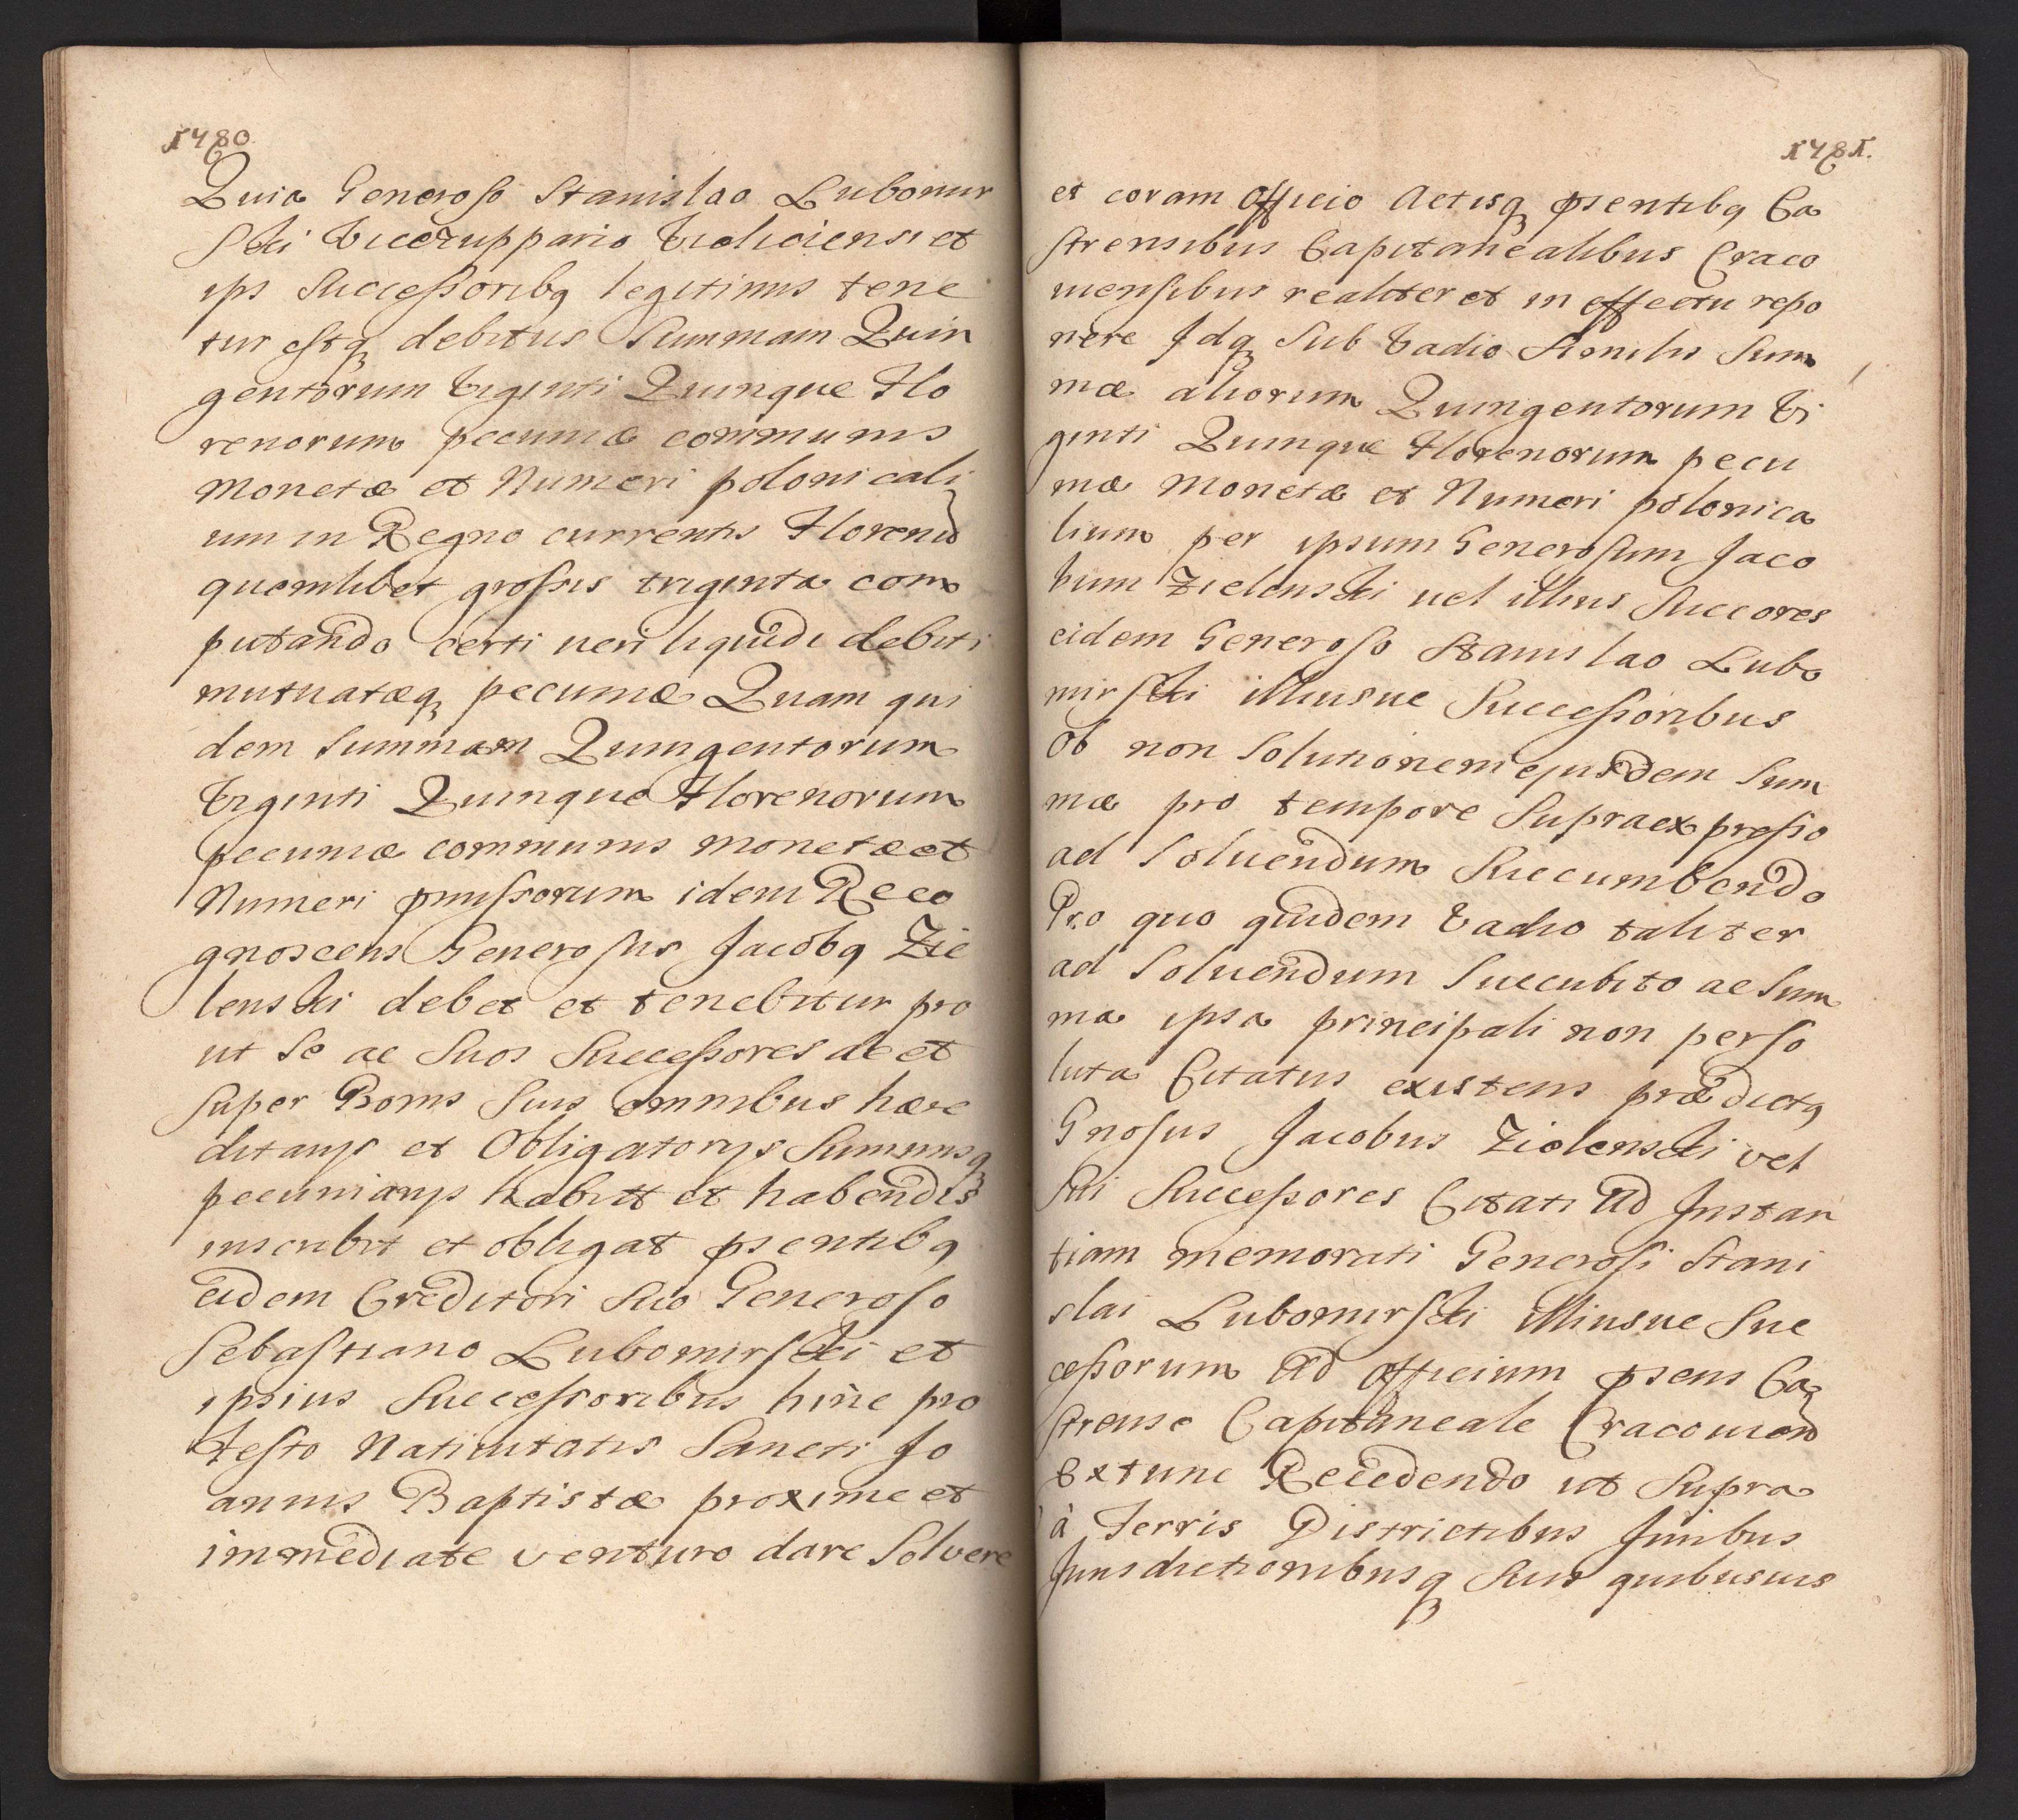 1480
Quia Generoso Stanislao Lubomir
ski Vicezuppario Vieliciensi et
ips Successoribq legitimis tene
tur estq debitus Summam Quin
gentorum Viginti Quinque Flo
renorum pecuniæ communis
Monetæ et Numeri polonicali
um in Regno currentis Florenũ
quemlibet grossis triginta com
putando certi veri liquidi debiti
mutuatæq pecuniæ Quam qui
dem Summam Quingentorum
Viginti Quinque Florenorum
pecuniæ communis monetæ et
Numeri pmissorum idem Reco
gnoscens Generosus Jacobq Zie
lenski debet et tenebitur pro
ut Se ac Suos Successores de et
Super Bonis Suis omnibus hære
ditarijs et Obligatorijs Summisq
pecuniarijs habitt et habendis
inscribit et obligat psentibq
eidem Creditori Suo Generoso
Sebastiano Lubomirski et
ipsius Successoribus hinc pro
Festo Nativitatis Sancti Jo
annis Baptistæ proxime et
immediate venturo dare Solvere
1481.
et coram Officio Actisq psentibq Ca
strensibus Capitanealibus Craco
viensibus realiter et in effectu repo
nere Jdq Sub Vadio Similis Sum
mæ aliorum Quingentorum Vi
ginti Quinque Florenorum pecu
niæ Monetæ et Numeri polonica
lium per ipsum Generosum Jaco
bum Zielenski vel illius Succores
eidem Generoso Stanislao Lubo
mirski illiusue Successoribus
Ob non Solutionem ejusdem Sum
mæ pro tempore Supraexpresso
ad Soluendum Succumbendo
Pro quo quidem Vadio taliter
ad Soluendum Succubito ac Sum
ma ipsa principali non perso
luta Citatus existens prædictq
Gnosus Jacobus Zielenski vel
Sui Successores Citati Ad Jnstan
tiam memorati Generosi Stani
slai Lubomirski illiusue Suc
cessorum Ad Officium psens Ca
strense Capitaneale Cracovien
Extunc Recedendo ut Supra
à Terris Districtibus Juribus
Jurisdictionibusq Suis quibusuis